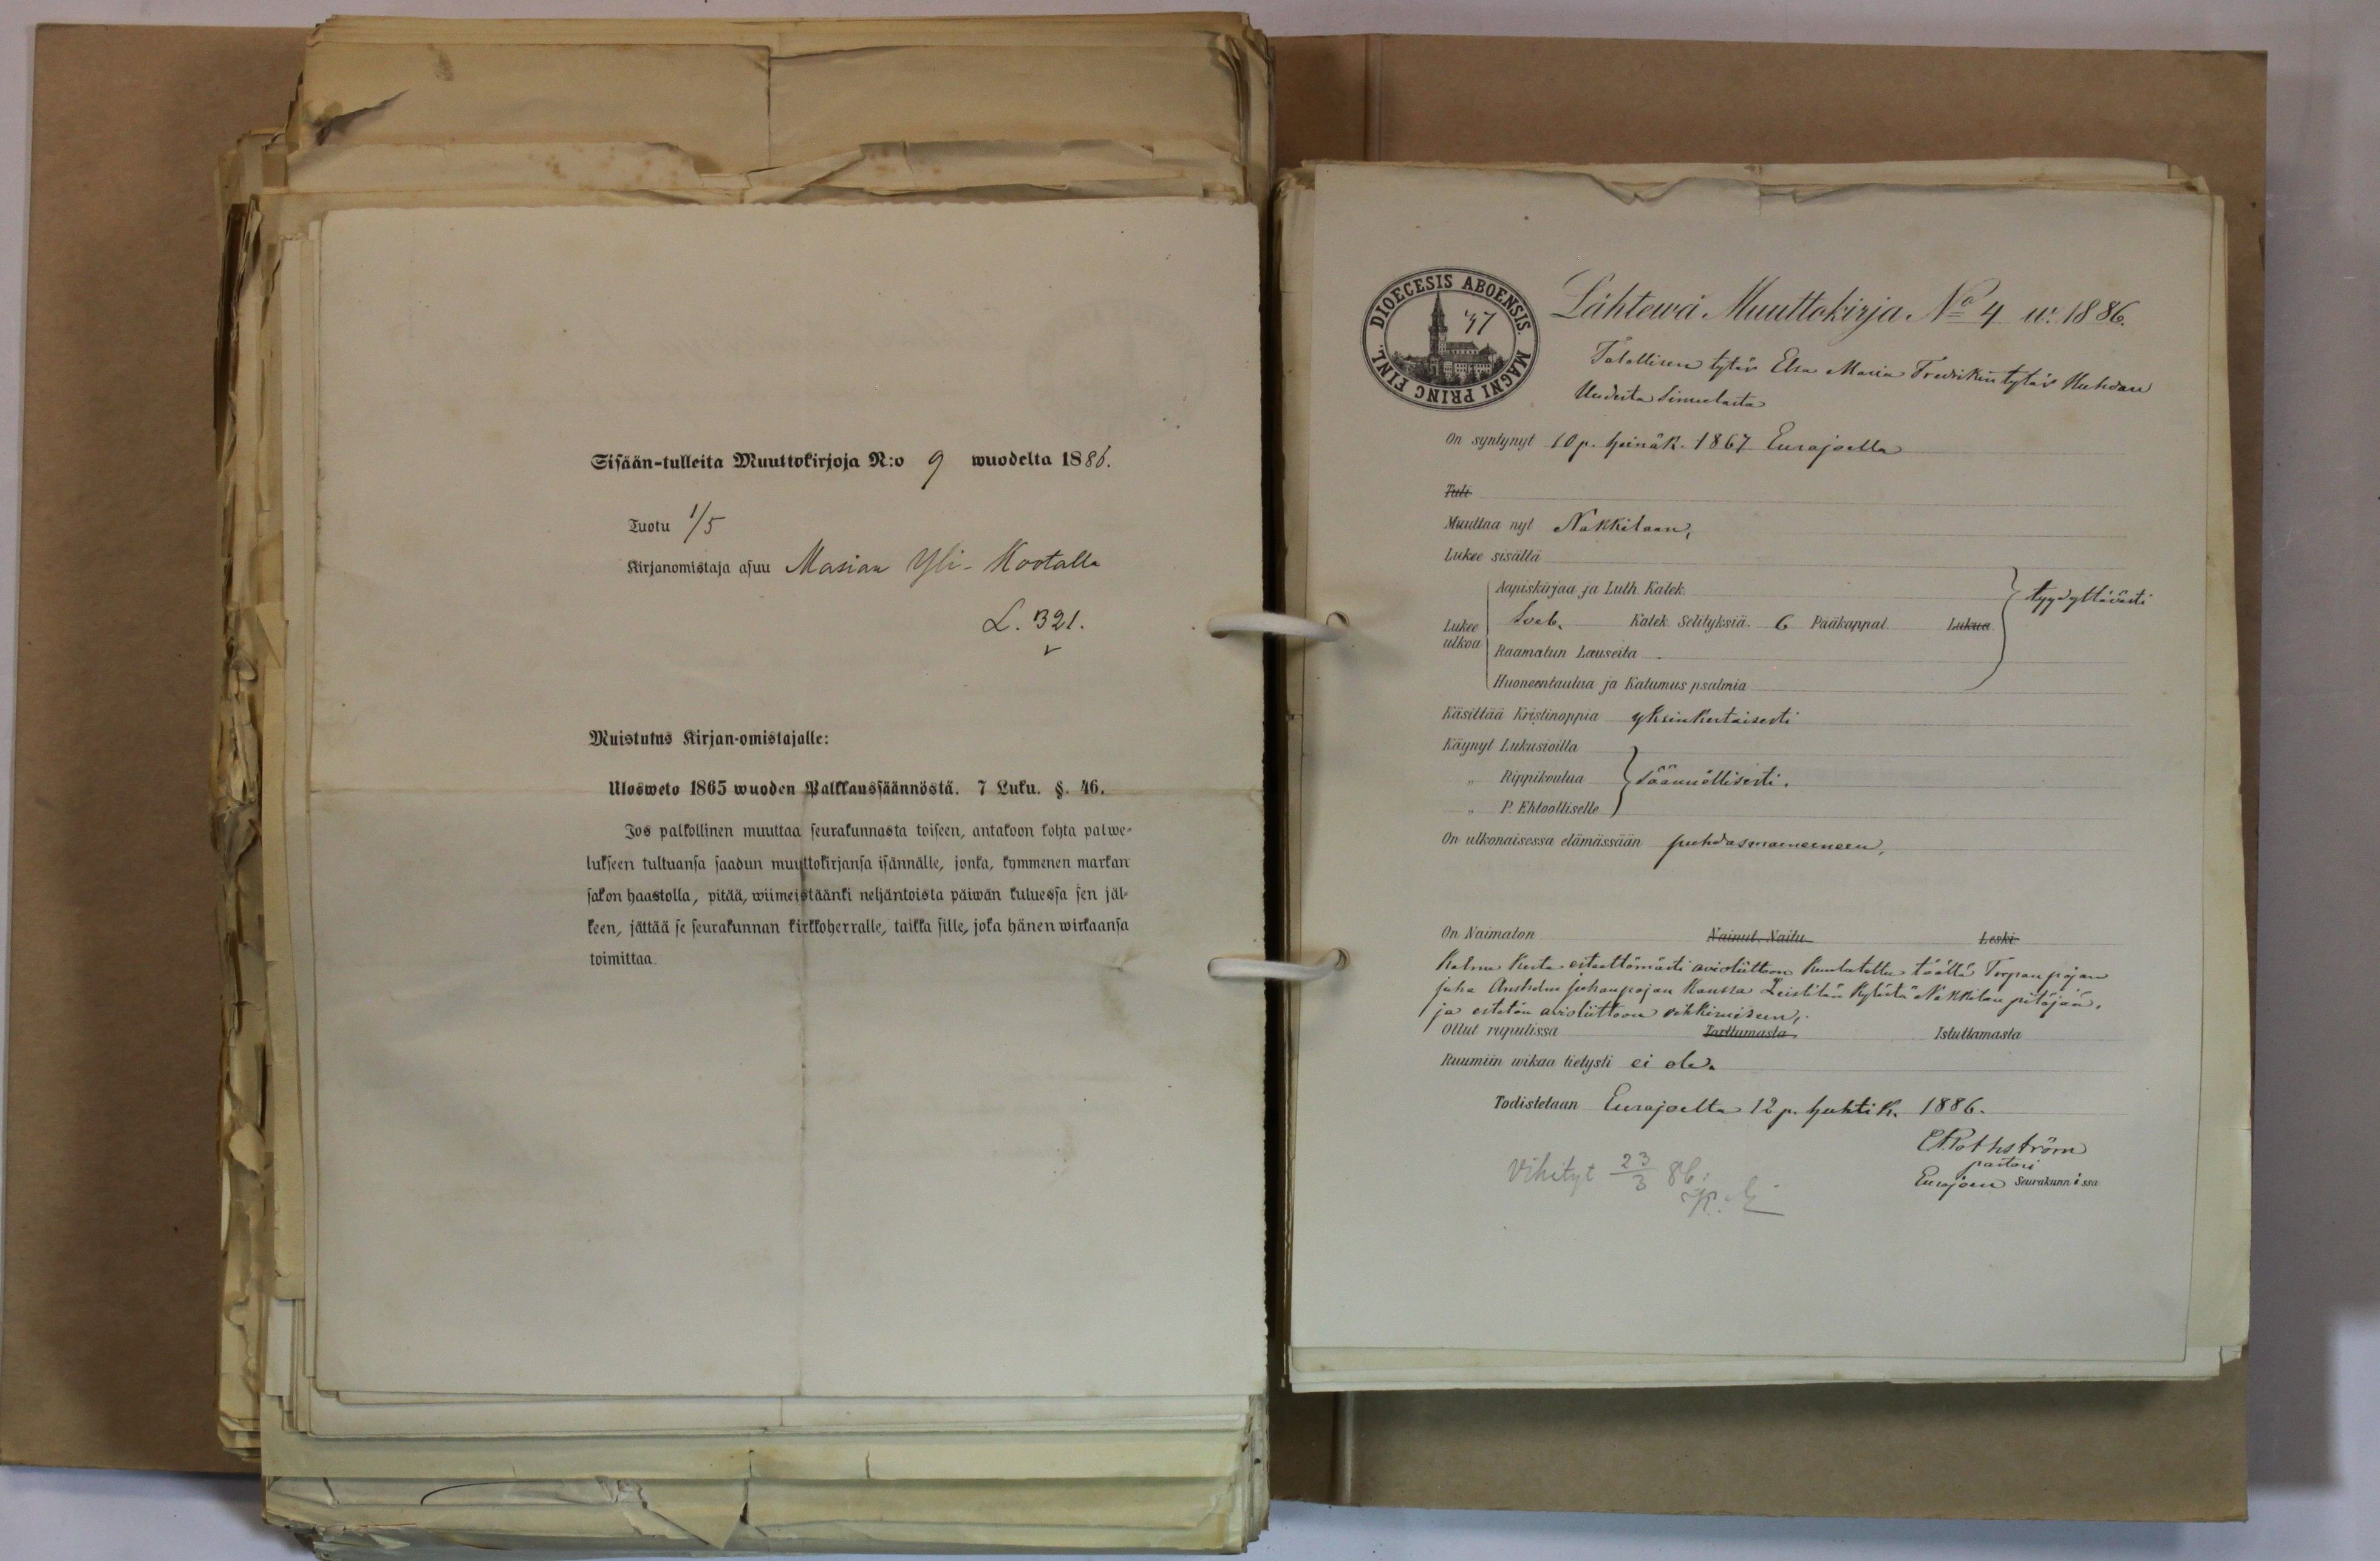 Sisään-tulleita Muuttokirjoja N:o 9 wuodelta 1886.
Tuotu 1/5
Kirjanomistaja asuu Masian Yli-Kootalla
L. 321.
Muistutus Kirjan-omistajalle:
Ulosweto 1865 wuoden Palkkaussäännöstä. 7 Luku. §. 46.
Jos palkollinen muuttaa seurakunnasta toiseen, antakoon kohta palwe-
lukseen tultuansa saadun muuttokirjansa isännälle, jonka, kymmenen markan
sakon haastolla, pitää, wiimeistäänki neljäntoista päiwän kuluessa sen jäl-
keen, jättää se seurakunnan kirkkoherralle, taikka sille, joka hänen wirkaansa
toimittaa.
DIOECESIS ABOENSIS. MAGNI PRINC FINL.
37
Lähtewä Muuttokirja No 4 w. 1886.
Talollisen tytär Elsa Maria Fredrikin tytär Kuhdau
Uudesta Simulasta
On syntynyt 10 p. heinäk. 1867 Eurajoella
Tuli
Muuttaa nyt Nakkilaan,
Lukee sisältä
Aapiskirjaa ja Luth. Katek.
tyydyttävästi
Lukee ulkoa
Sveb. Katek. Selityksiä. 6 Pääkappal. Lukua
Raamatun Lauseita
Huoneentaulua ja Katumus psalmia
Käsittää Kristinoppia yksinkertaisesti
Käynyt Lukusioilla
" Rippikoulua säännöllisesti.
" P. Ehtoolliselle
On ulkonaisessa elämässään puhdasmaineinen,
On Naimaton Nainut. Naitu Leski
Kolme kerta esteettömästi avioliittoon kuulutettu täällä Torpan pojan
Juha Anshelm Juhanpojan kanssa Leistilän kylästä Nakkilan pitäjää,
ja esteetön avioliittoon vihkimiseen,
Ollut rupulissa Tarttumasta Istuttamasta
Ruumiin wikaa tietysti ei ole.
Todistetaan Eurajoella 12 p. huhtik. 1886.
Rothström
pastori
Eurajoen Seurakunnissa
Vihityt 23/3 86.